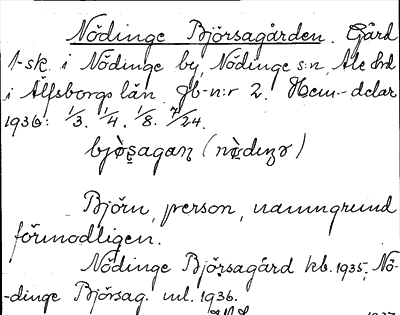 Nödinge Björsagården. Gård
1-sk. i Nödinge by, Nödinge s:n, Ale hd
i Älfsborgs län. Jb-n:r 2. Hem.-delar
1936: 1/3. 1/4. 1/8. 7/24.
bjɷ̀ʂagaɳ (nɷ̀dɩŋɘ)
Björn, person, namngrund
förmodligen.
Nödinge Björsagård kb. 1935, Nö-
-dinge Björsag. ml. 1936.
1937